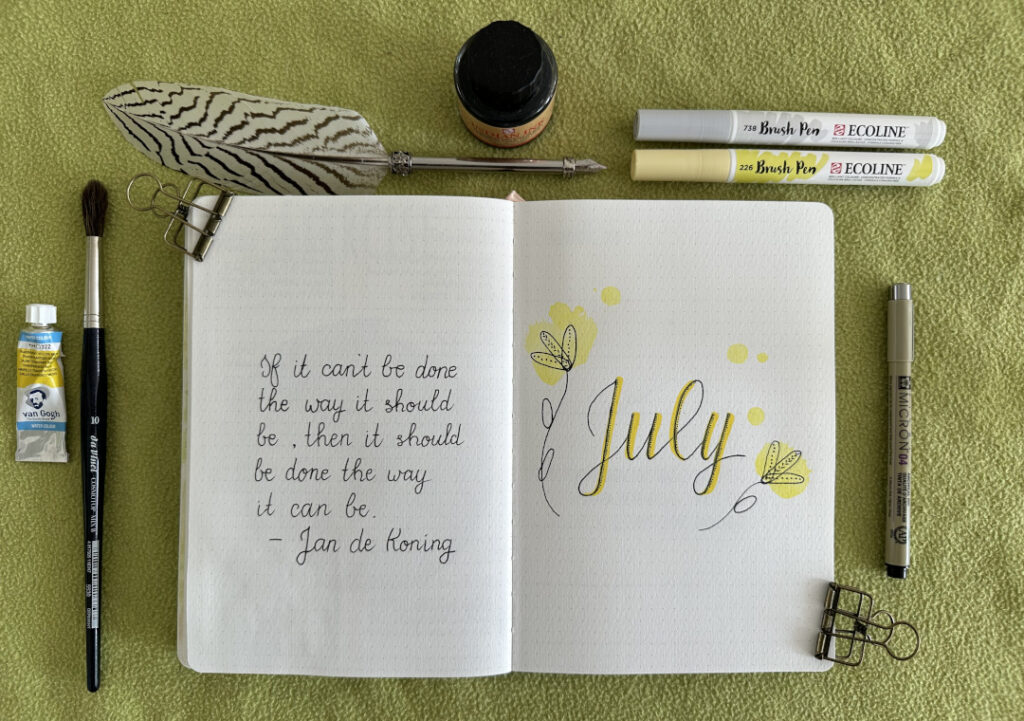 738 Brush Pen ECOLINE
226 Brush Pen ECOLINE
If it can't be done
the way it should
be, then it should
be done the way
it can be.
- Jan de Koning
July
WATER COLOUR
van Gogh
WATER COLOUR
10 da Vinci COSMOTOP-MIX B
MICRON 04